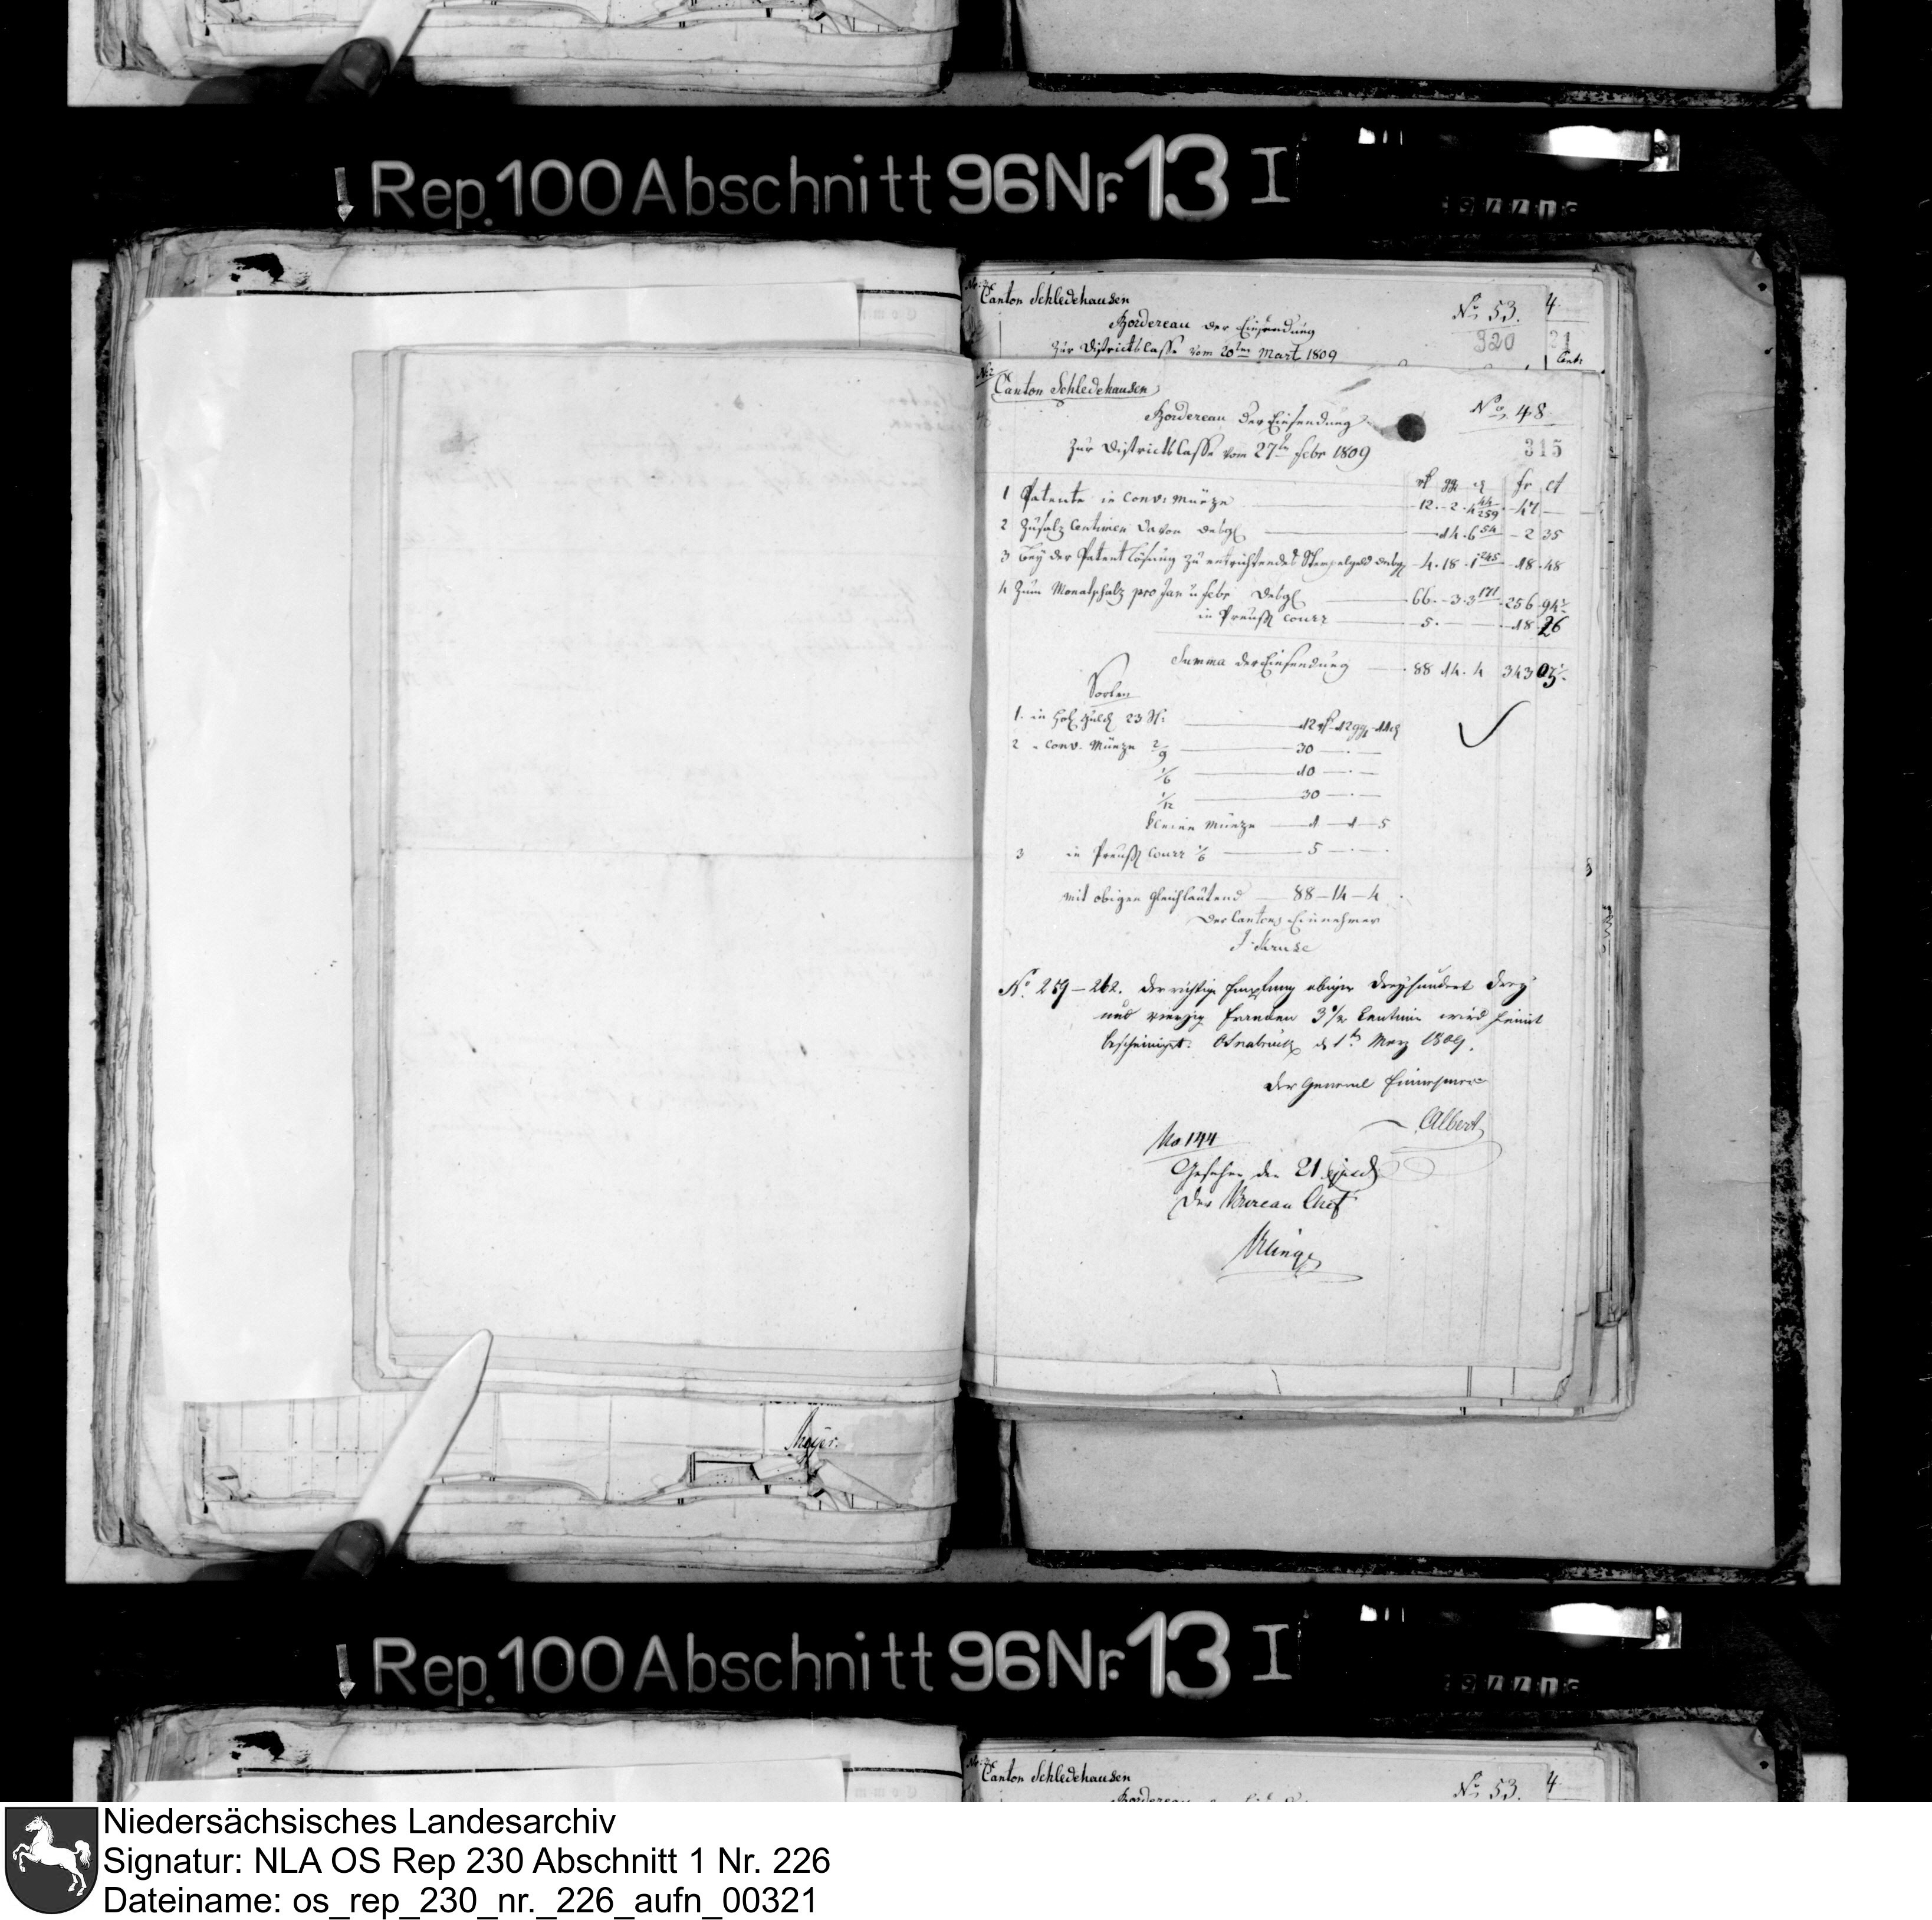 Rep. 100 Abschnitt 96 Nr. 13 I
Canton Schledehausen
No 53.
4
Bordereau der Einsendung
320
21
zur Districtscasse vom 20ten Mart 1809
Cents
Canton Schledehausen
No. 48
Bordereau der Einsendung
315
zur Districtscasse vom 27ten Febr 1809
fr ct
1 Patente in Conv: Münze 12 - 2 - 4 44/259 - 47 —
2 Zusatz Centimen davon desgl — 14 . 6 54 - 2 35
3 Bey der Patent Lösung zu entrichtendes Stempelgeld desgl - 4 . 18 . 1 245 - 18 . 48
4 Zum Monatsschatz pro Jan u Febr desgl 66 - 3 . 3 171 . 256 . 94½
in Preuß Cour 5 . — 18 . 26
Summa der Einsendung 88 14 . 4 343 03½
Sorten
1. in Hol. 23 St: 12 - 12 - 11
2 - Conv. Münze 2/3 30 — . —
1/6 10 — . —
1/12 30 — . —
kleine Münze 1 — 1 — 5
3 in Preuß Cour 1/6 5 — . — .
mit obigen gleichlautend 88 — 14 — 4
Der Cantons Einnehmer
J. Kruse
No. 259 - 262. Der richtige Empfang obiger dreyhundert drey
und vierzig Franken 3½ Centimen wird hiemit
bescheiniget. Osnabrück d 1t. Merz 1809.
Der General Einnehmer
Albert
No 144
Gesehen den 21 ejusd
Der Bureau Chef
Meyer.
Rep. 100 Abschnitt 96 Nr. 13 I
Canton Schledehausen
No 53. 4
Niedersächsisches Landesarchiv
Signatur: NLA OS Rep 230 Abschnitt 1 Nr. 226
Dateiname: os_rep_230_nr._226_aufn_00321